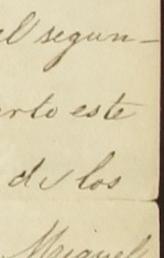 el segun-
erto este
de los
Miguel